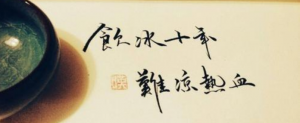 飲冰十年
難凉熱血